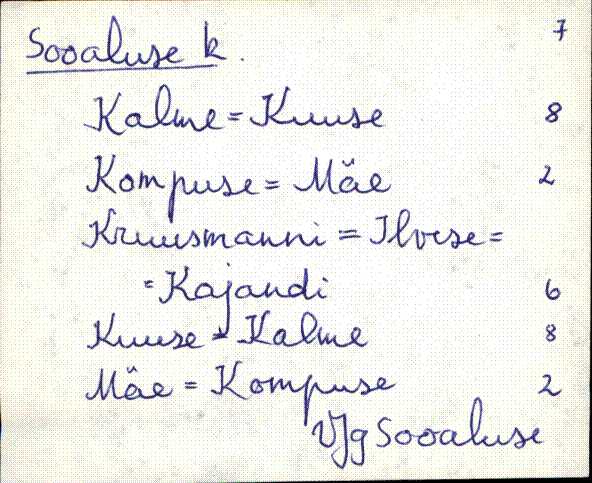 Sooaluse k. 7
Kalme = Kuuse 8
Kompuse = Mäe 2
Kruusmanni = Ilvese =
= Kajandi 6
Kuuse = Kalme 8
Mäe = Kompuse 2
VJg Sooaluse